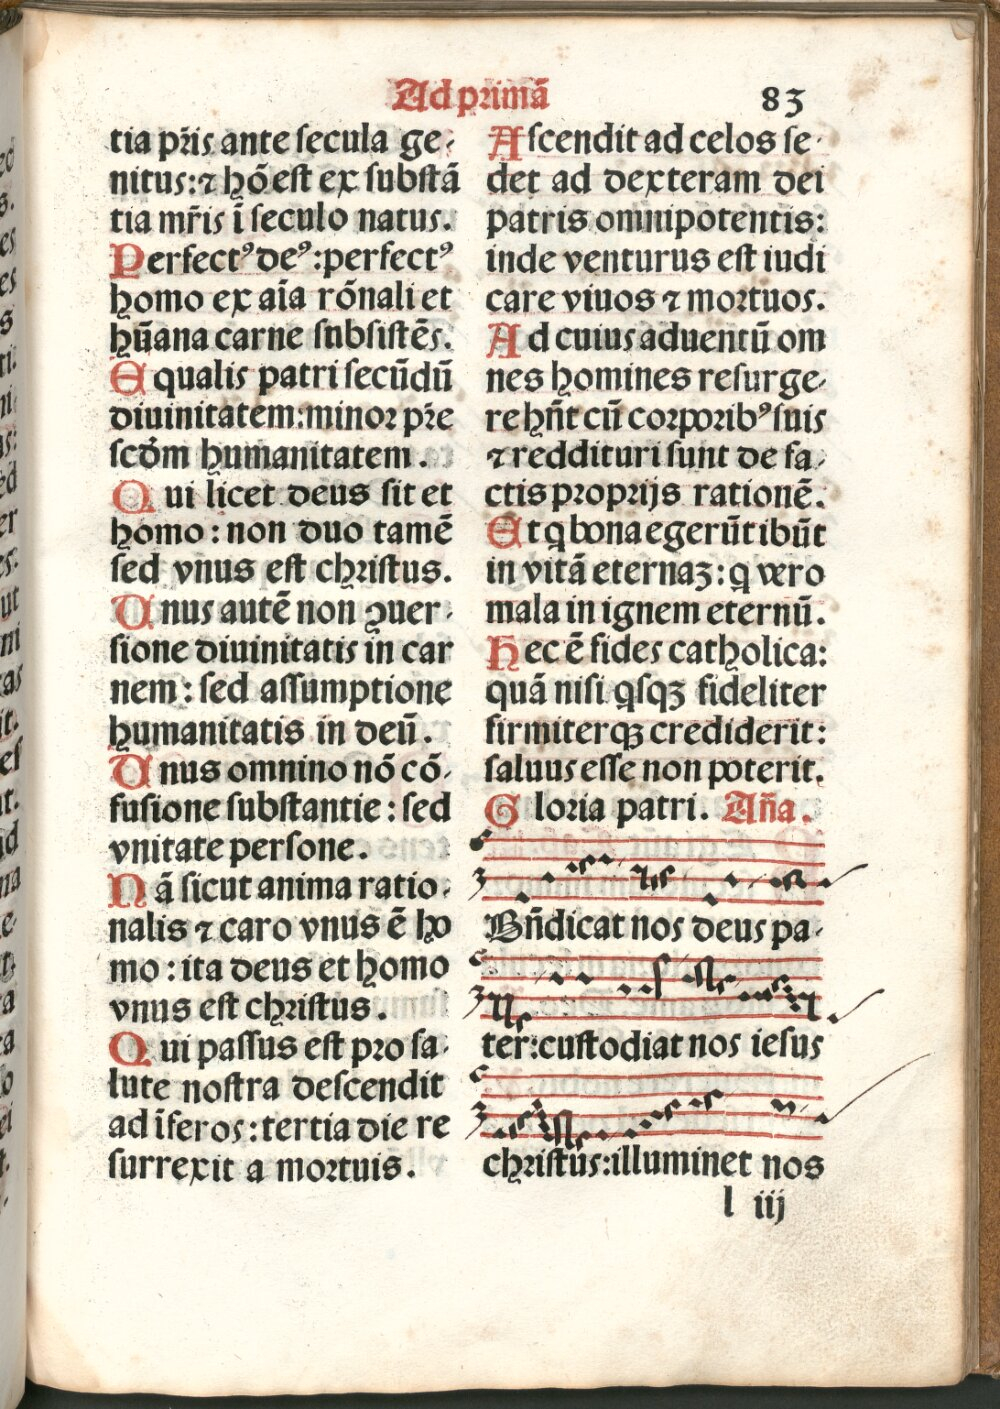 Ad primā
83
tia pr̄is ante secula ge-
nitus: ⁊ hō est ex substā
tia mr̄is ī seculo natus.
Perfectꝰ deꝰ: perfectꝰ
homo ex aīa rōnali et
hūana carne subsistēs.
Equalis patri secūdū
diuinitatem: minor pr̄e
scd̄m humanitatem.
Qui licet deus sit et
homo: non duo tamē
sed vnus est christus.
Unus autē non ꝯuer-
sione diuinitatis in car
nem: sed assumptione
humanitatis in deū.
Unus omnino nō cō-
fusione substantie: sed
vnitate persone.
Nā sicut anima ratio-
nalis ⁊ caro vnus ē ho
mo: ita deus et homo
vnus est christus.
Qui passus est pro sa-
lute nostra descendit
ad īferos: tertia die re
surrexit a mortuis.
Ascendit ad celos se-
det ad dexteram dei
patris omnipotentis:
inde venturus est iudi
care viuos ⁊ mortuos.
Ad cuius aduentū om
nes homines resurge-
re hn̄t cū corporibꝰ suis
⁊ reddituri sunt de fa-
ctis proprijs rationē.
Et q̇ bona egerūt ibūt
in vitā eternaꝫ: q̇ vero
mala in ignem eternū.
Hec ē fides catholica:
quā nisi qͥsqꝫ fideliter
firmiterqꝫ crediderit:
saluus esse non poterit.
Gloria patri. Añа.
Bn̄dicat nos deus pa-
ter: custodiat nos iesus
christus: illuminet nos
l iij